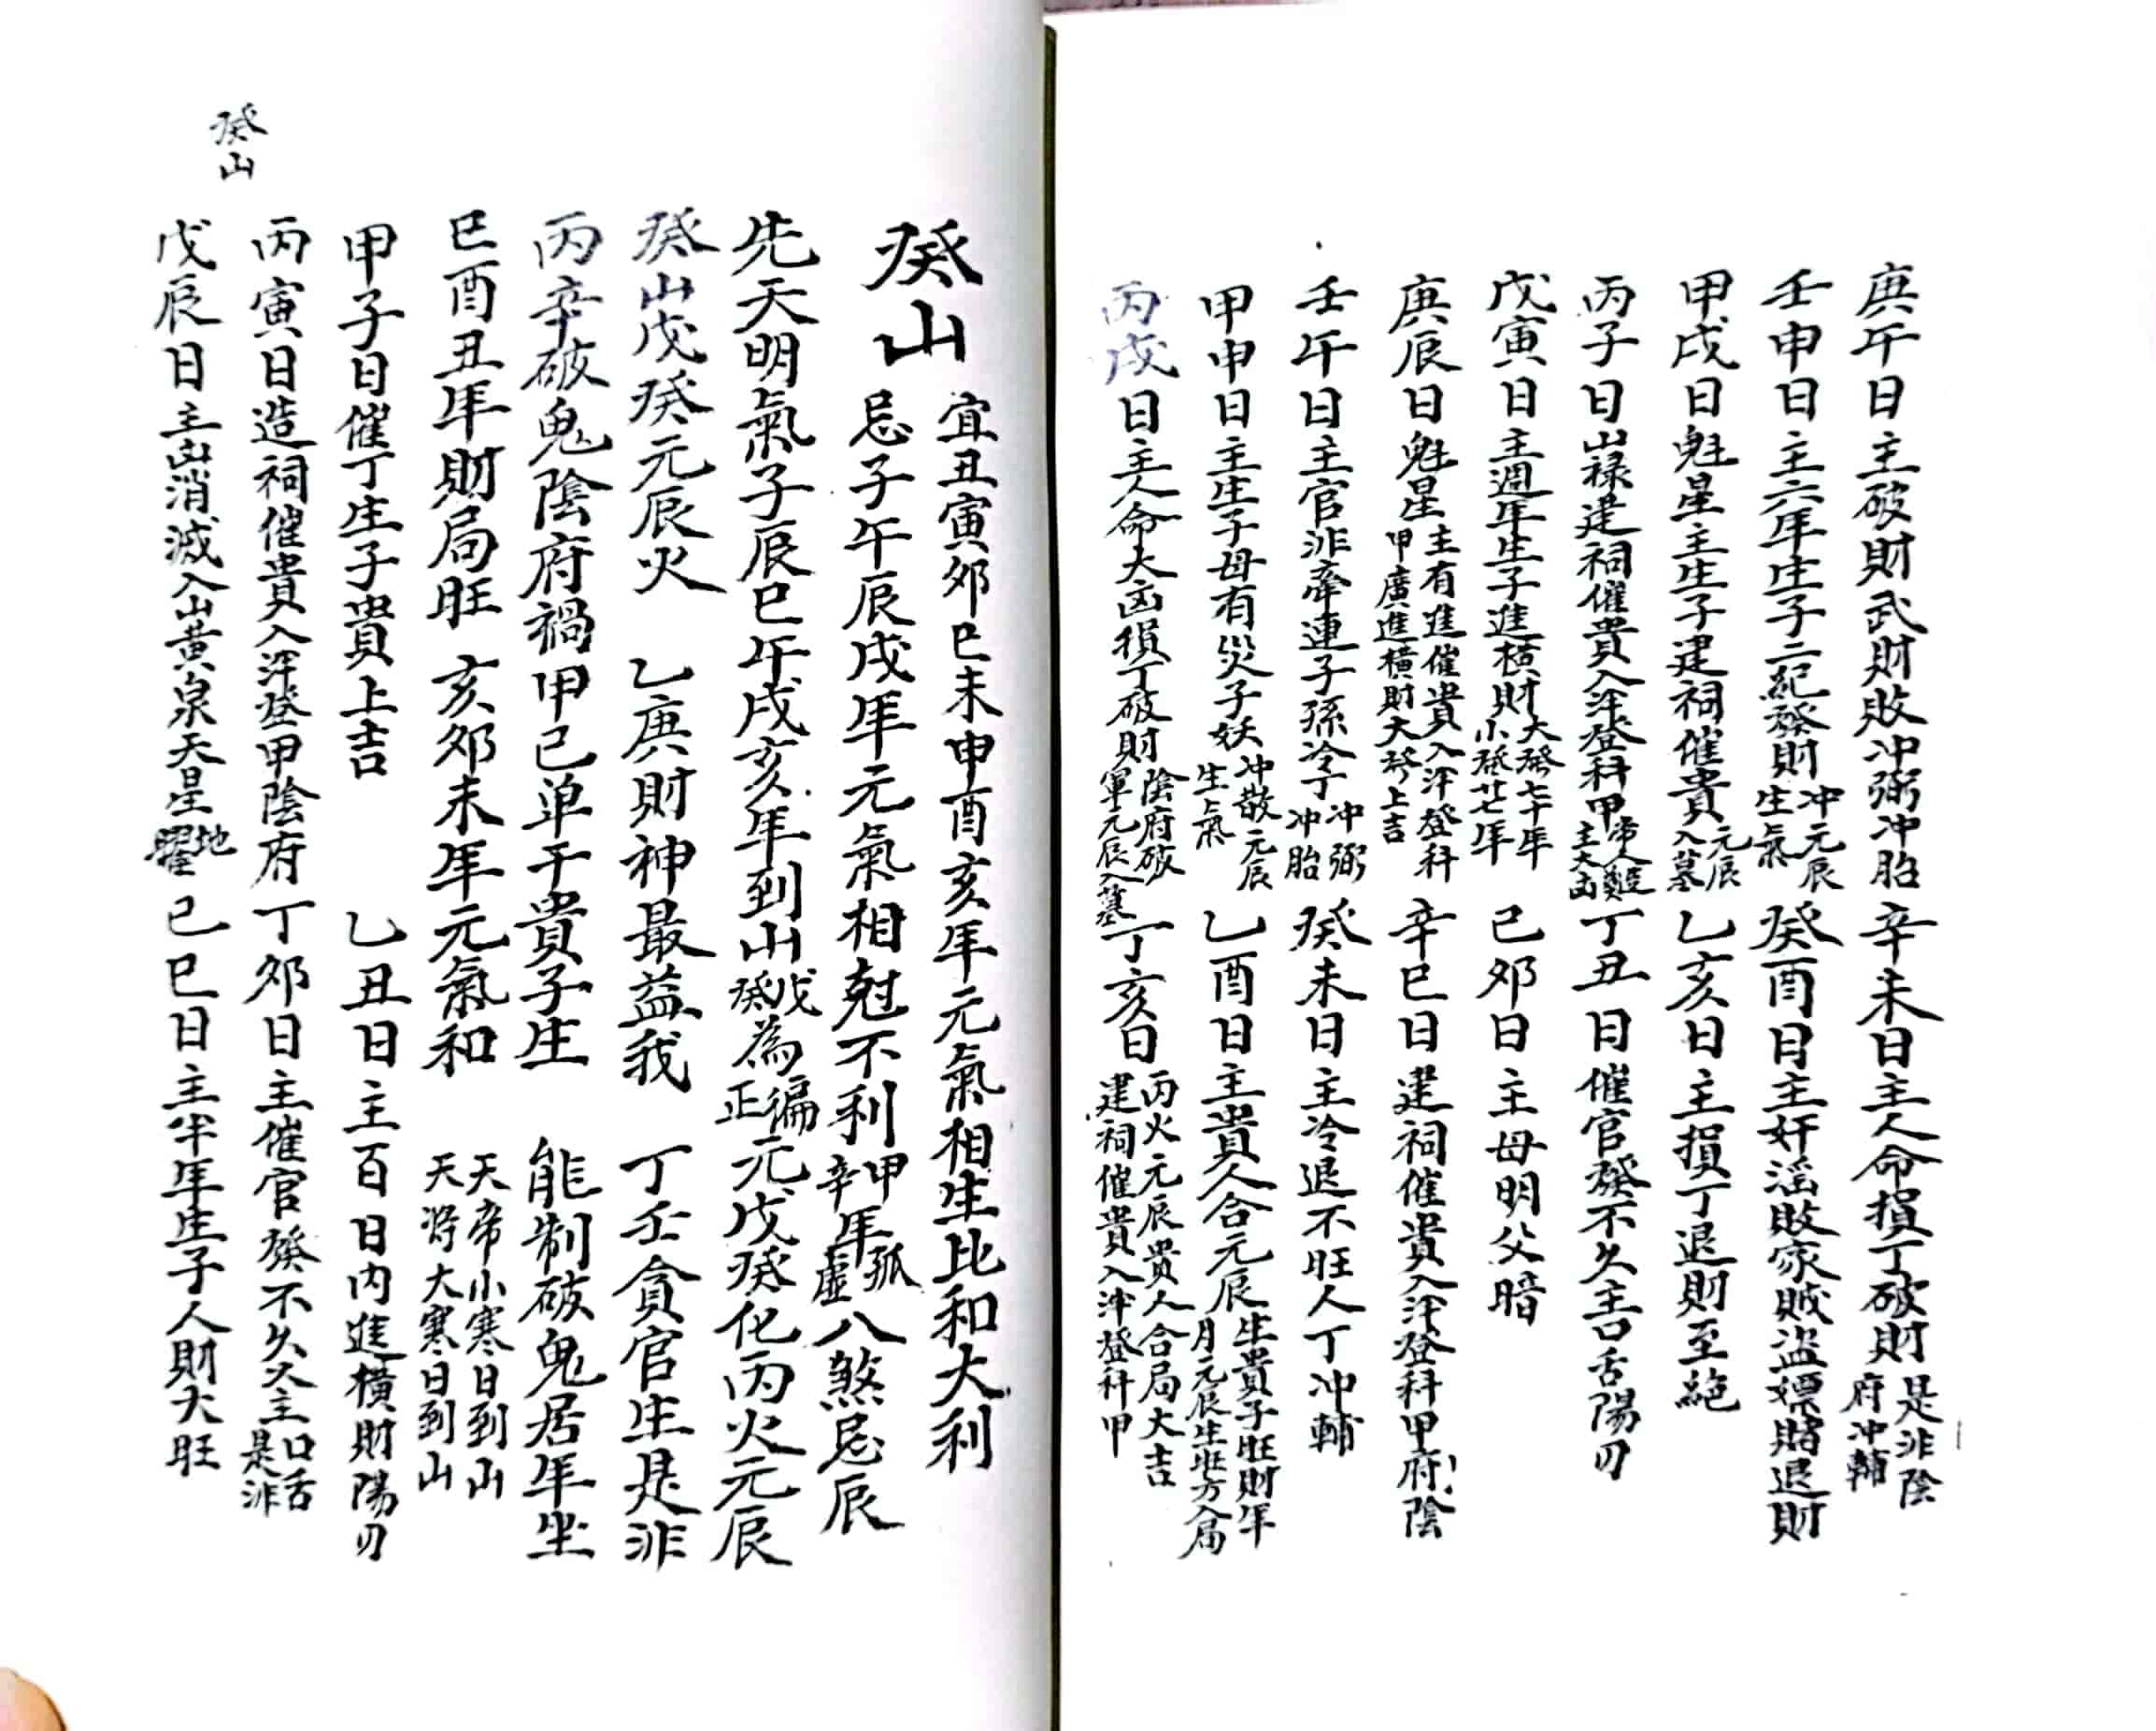 庚午日主破財武財敗冲弼冲胎 辛未日主人命損丁破財是非陰府冲輔
壬申日主六年生子二紀發財冲元辰生氣 癸酉日主奸淫敗家賊盗嫖賭退財
甲戌日魁星主生子建祠催貴元辰入墓 乙亥日主損丁退財至絶
丙子日山禄建祠催貴入泮登科甲帝人難主大凶 丁丑日催官發不久主口舌陽刃
戊寅日主週年生子進横財大發七十年小發廿年 己卯日主母明父暗
庚辰日魁星主有進催貴入泮登科甲廣進橫財大發上吉 辛巳日建祠催貴入泮登科甲府陰
壬午日主官非牽連子孫冷丁冲弼冲胎 癸未日主冷退不旺人丁冲輔
甲申日主生子母有災子妖冲散元辰生氣 乙酉日主貴人合元辰生貴子旺財年月元辰生旺方入局
丙戌日主人命大凶損丁破財陰府破軍元辰入墓 丁亥日丙火元辰贵人合局大吉建祠催貴入泮登科甲
癸山 宜丑寅卯巳未申酉亥年元氣相生比和大利
忌子午辰戌年元氣相尅不利甲辛年孤虛八煞忌辰
先天明氣子辰巳午戌亥年到山戊癸為徧正元戊癸化丙火元辰
癸山戊癸元辰火 乙庚財神最益我 丁壬貪官生是非
丙辛破鬼陰府禍 甲己单干貴子生 能制破鬼居年坐
巳酉丑年財局旺 亥卯未年元氣和 天帝小寒日到山天将大寒日到山
甲子日催丁生子貴上吉 乙丑日主百日内進橫財陽刃
丙寅日造祠催貴入泮登甲陰府 丁卯日主催官發不久又主口舌是非
戊辰日主凶消滅入山黄泉天星地曜 己巳日主半年生子人財大旺
癸山